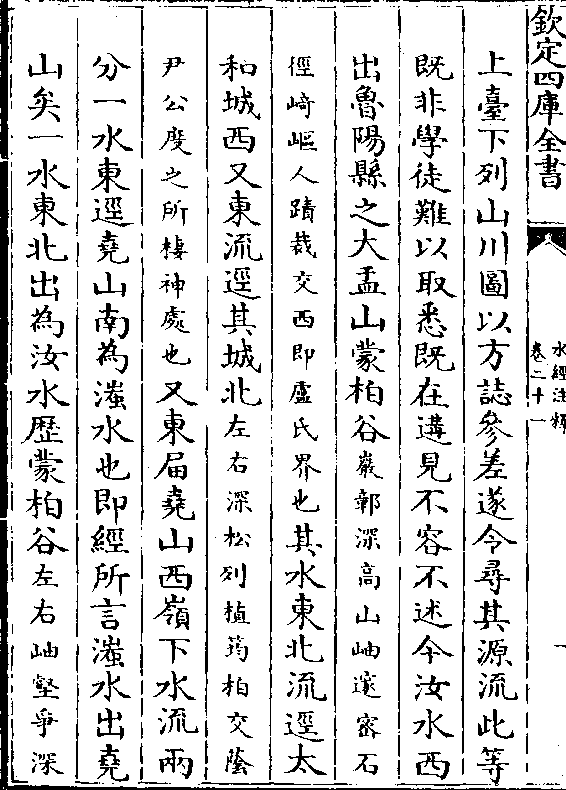 欽定四庫全書
水經注釋
卷二十一
上臺下列山川圖以方誌參差遂令尋其源流此等
既非學徒難以取悉既在遘見不容不述今汝水西
出魯陽縣之大盂山蒙柏谷巖鄣深高山岫邃密石
徑崎嶇人蹟裁交西即盧氏界也其水東北流逕太
和城西又東流逕其城北左右深松列植筠柏交蔭
尹公度之所棲神處也又東届堯山西嶺下水流兩
分一水東逕堯山南為滍水也即經所言滍水出堯
山矣一水東北出為汝水歷蒙柏谷左右岫壑爭深